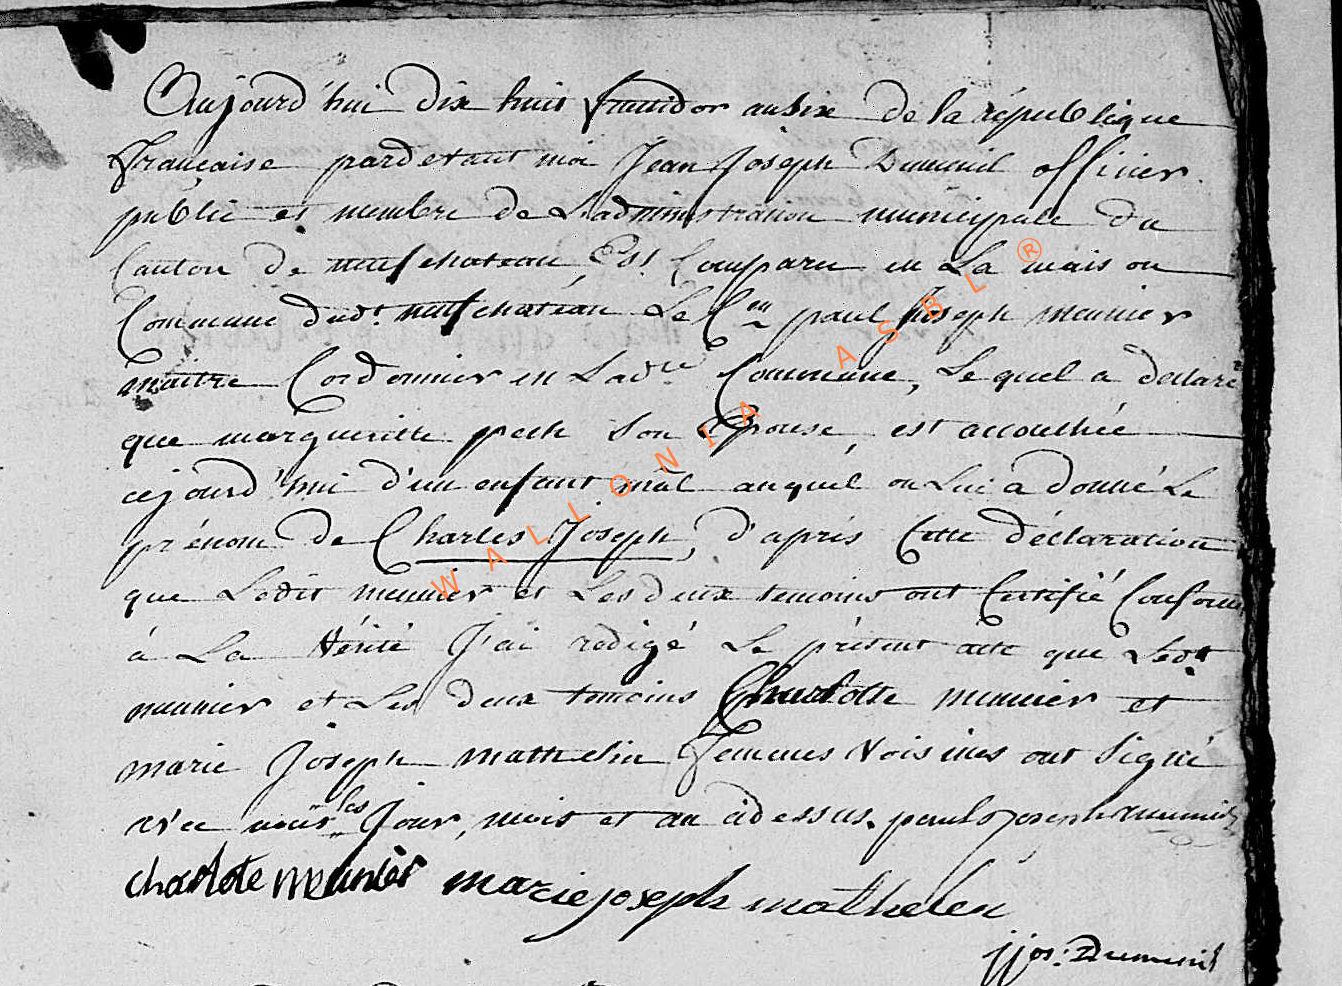 Aujourd'hui dix huit fructidor an six de la république
française pardevant moi Jean Joseph Dumenil officier
public et membre de L'administration municipale du
Canton de neufchateau Est Comparu en La maison
Commune dudt. neufchatéau Le Cen paul joseph meunier
maitre Cordonnier en Ladte Commune, Lequel a déclaré
que margueritte peck Son Epouse, est accouchée
cejourd'hui d'un enfant mâl auquél on Lui a donné Le
prénom de Charles Joseph, d'aprés Cette déclaration
que Ledit meunier et Les deux temoins ont Certifié Conforme
à La Vérité J'ai redigé Le présent acte que Ledt
meunier et Les deux temoins Charlotte meunier et
marie Joseph mathelin femmes Voisines ont Signé
avec nous les Jour, mois et an cidessus. paul Joseph meunier
charlote meunier marie joseph mathelen
jjos: Dumenil
WALLONIA ASBL ®